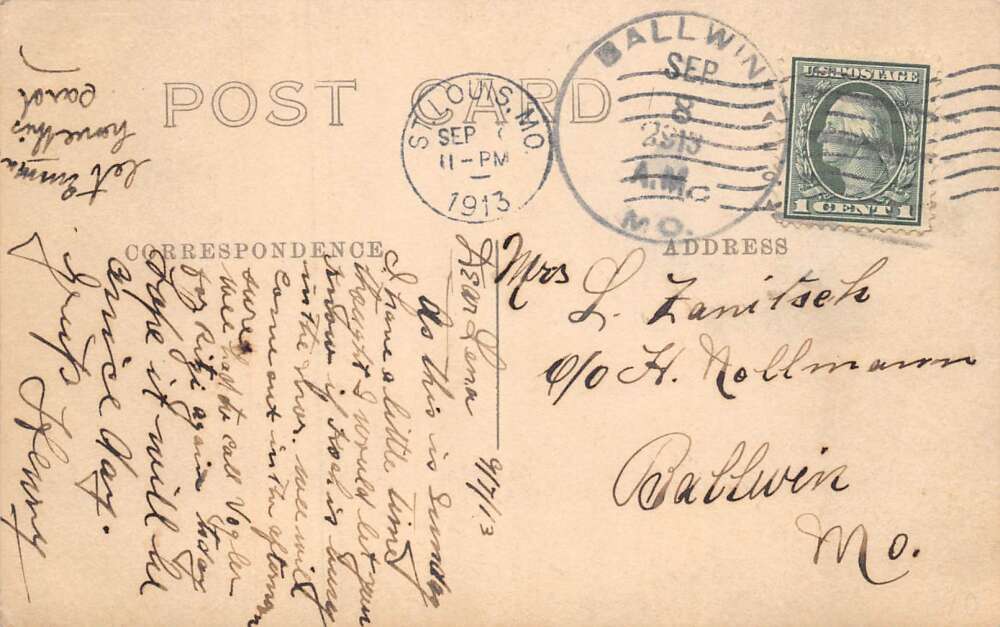 POST CARD
ST. LOUIS, MO.
SEP 7
11-PM
1913
BALLWIN
SEP
8
1913
A.M.
MO.
U.S. POSTAGE
1 CENT 1
CORRESPONDENCE
ADDRESS
Mrs L. Zanitsch
c/o H. Nollmann
Ballwin
Mo.
9/7/13
Dear Lena
As this is Sunday
I have a little time
thought I would let you
know if is busy
in the shop. we will
come out in the afternoon
sure, had to call Vogler
for again today
Hope it will be
a nice day.
Henry
let Emma
have this
card